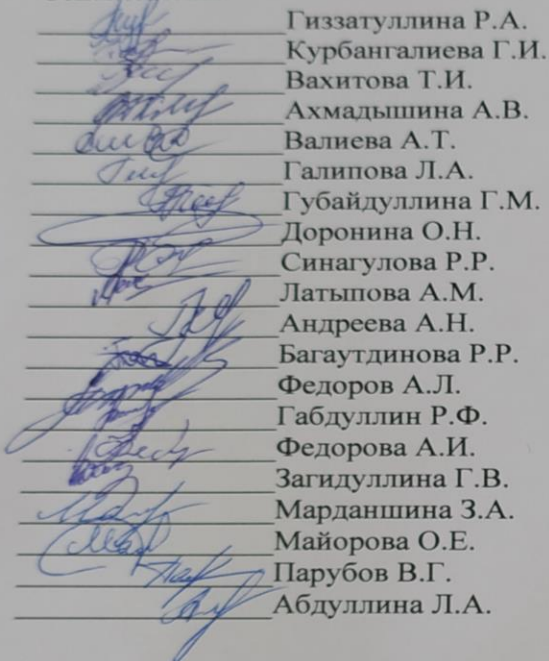 Гиззатуллина Р.А.
Курбангалиева Г.И.
Вахитова Т.И.
Ахмадышина А.В.
Валиева А.Т.
Галипова Л.А.
Губайдуллина Г.М.
Доронина О.Н.
Синагулова Р.Р.
Латыпова А.М.
Андреева А.Н.
Багаутдинова Р.Р.
Федоров А.Л.
Габдуллин Р.Ф.
Федорова А.И.
Загидуллина Г.В.
Марданшина З.А.
Майорова О.Е.
Парубов В.Г.
Абдуллина Л.А.